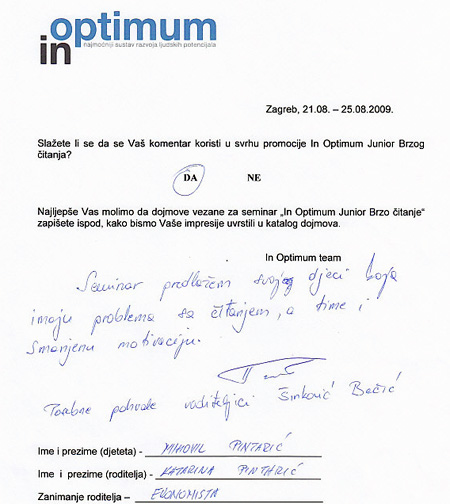 in optimum
najmoćniji sustav razvoja ljudskih potencijala
Zagreb, 21.08. – 25.08.2009.
Slažete li se da se Vaš komentar koristi u svrhu promocije In Optimum Junior Brzog
čitanja?
DA NE
Najljepše Vas molimo da dojmove vezane za seminar „In Optimum Junior Brzo čitanje“
zapišete ispod, kako bismo Vaše impresije uvrstili u katalog dojmova.
In Optimum team
Seminar predlažem svoj djeci koja
imaju problema sa čitanjem, a time i
smanjenu motivaciju.
Posebne pohvale voditeljici Sinković Bačić
Ime i prezime (djeteta) - MIHOVIL PINTARIĆ
Ime i prezime (roditelja) - KATARINA PINTARIĆ
Zanimanje roditelja – EKONOMISTA